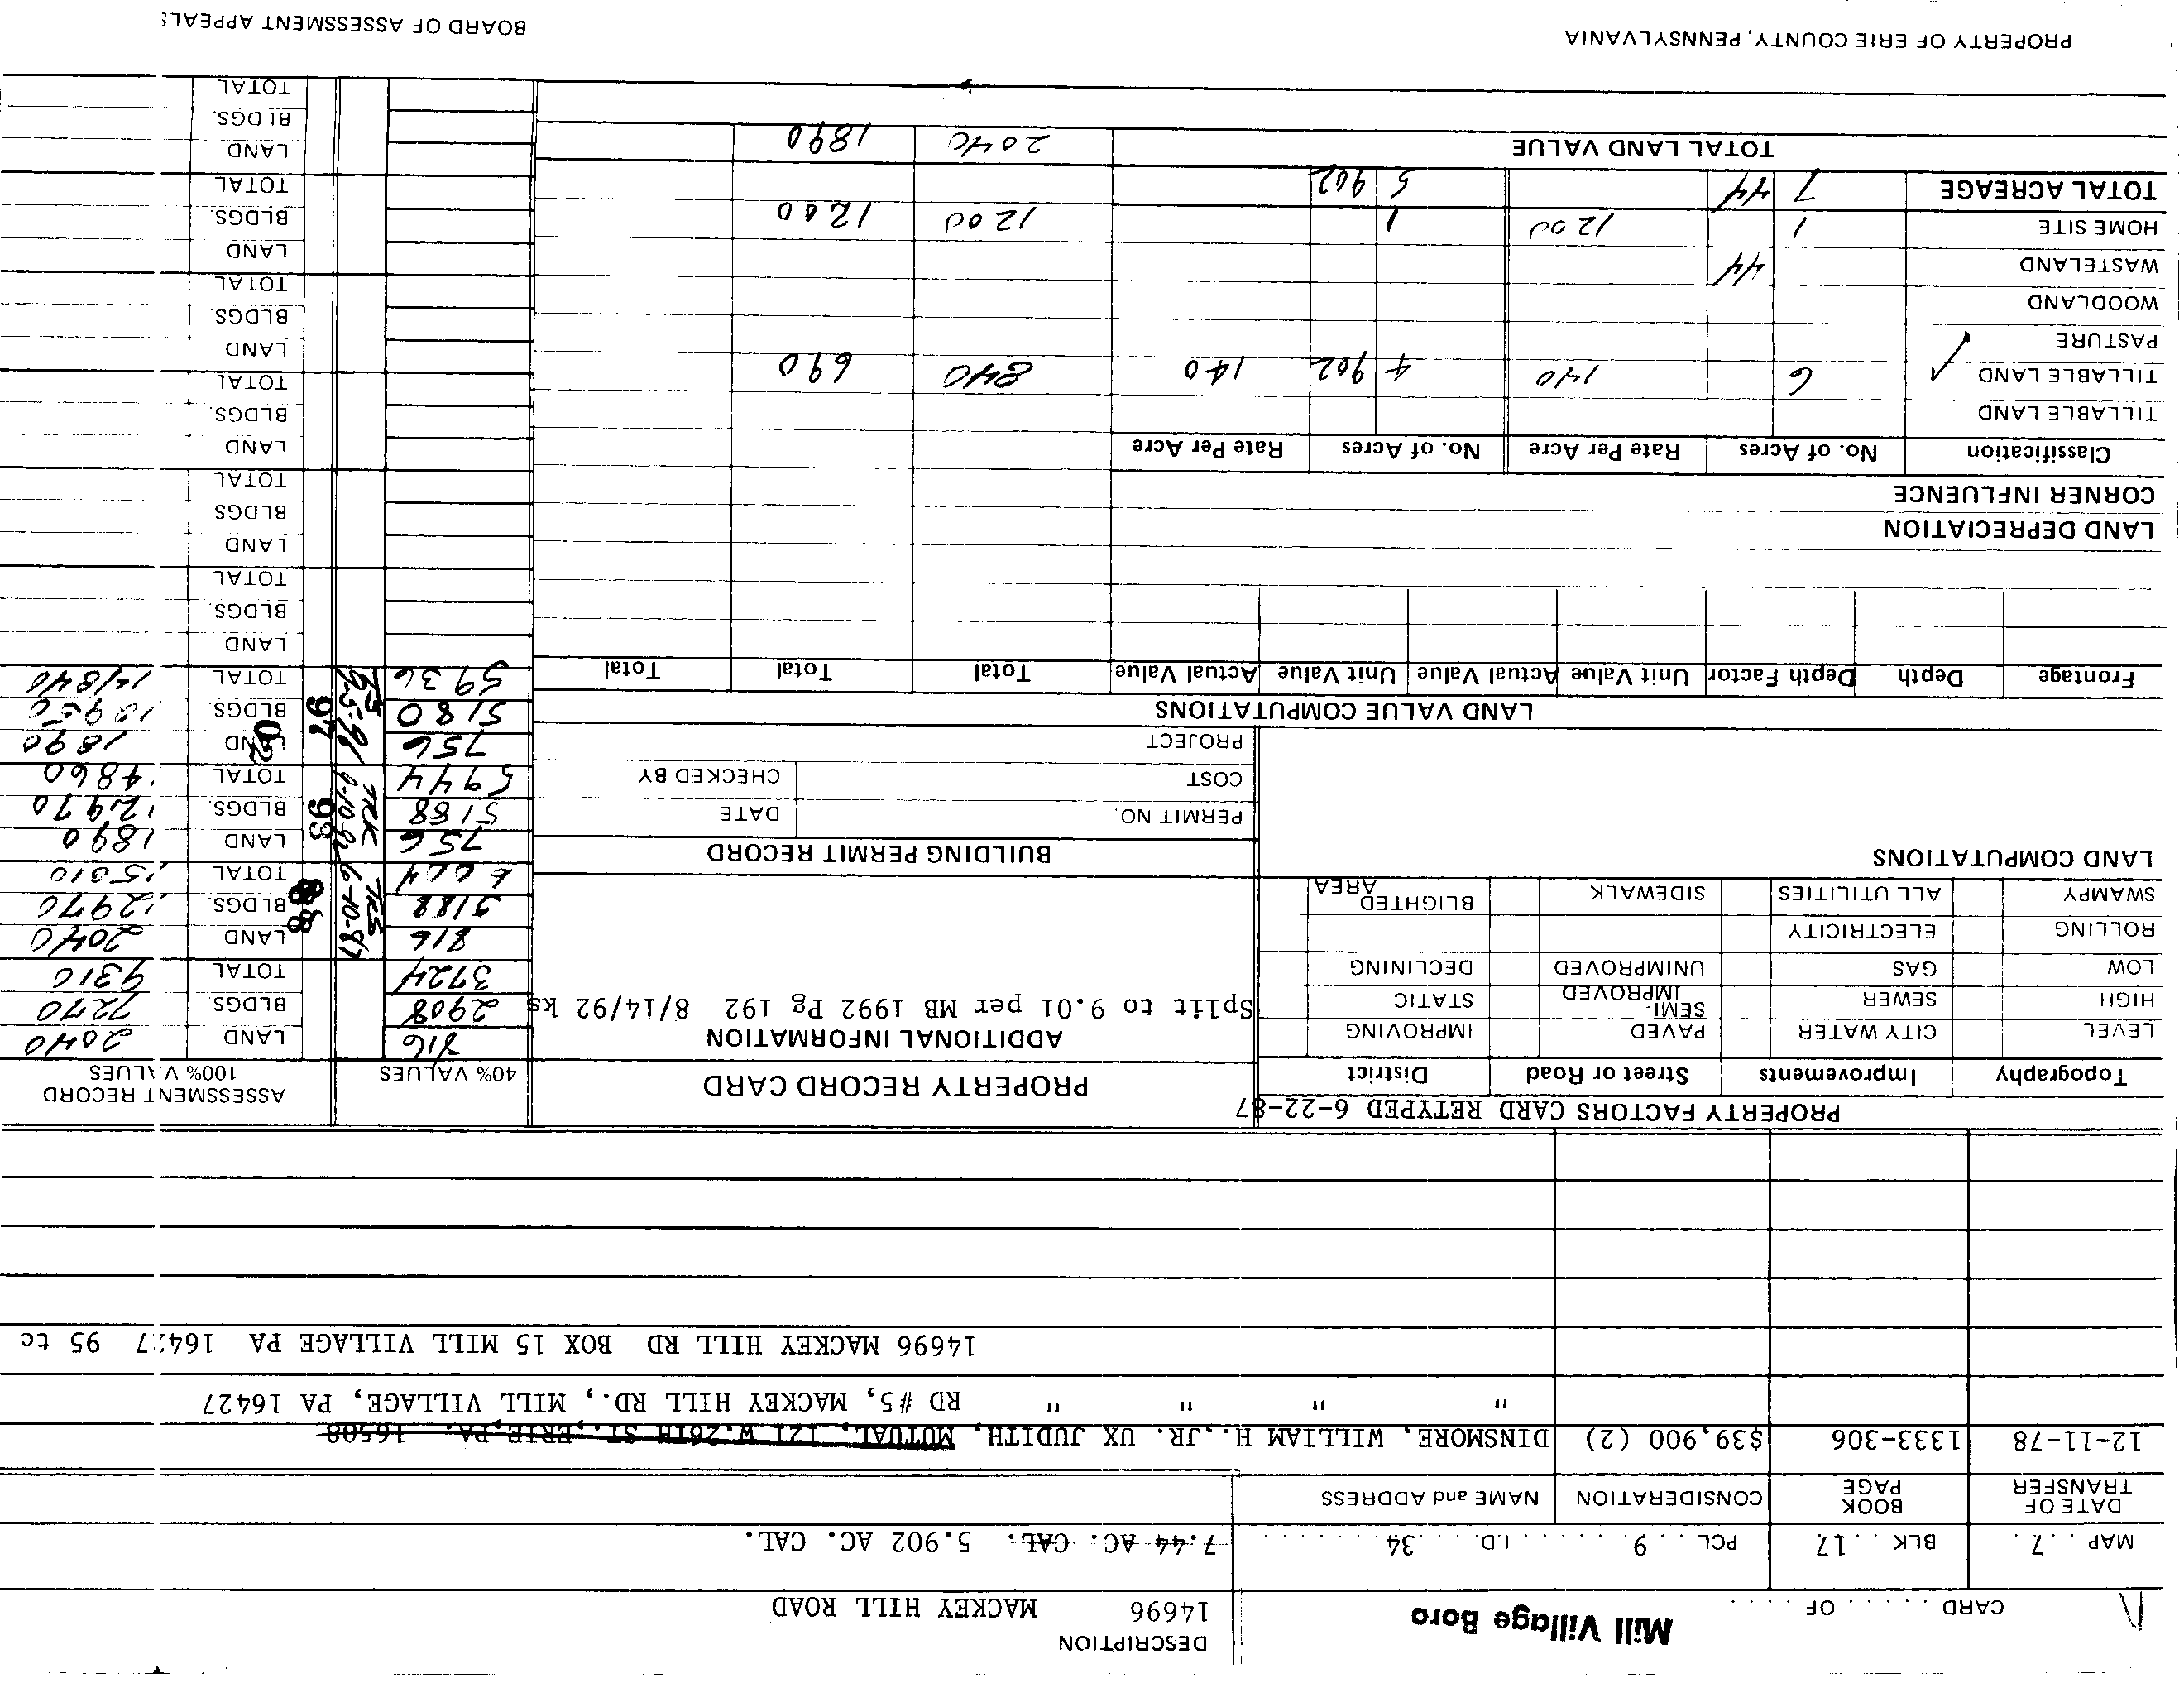 DESCRIPTION
Mill Village Boro
CARD . . . . . OF . . . . .
14696 MACKEY HILL ROAD
MAP . . 7 . . BLK . . 17 . . PCL . . . 9 . . . . I.D. . . . 34 . . . . 7.44 AC. CAL. 5.902 AC. CAL.
DATE OF TRANSFER BOOK PAGE CONSIDERATION NAME and ADDRESS
12-11-78 1333-306 $39,900 (2) DINSMORE, WILLIAM H.,JR. UX JUDITH, MUTUAL, 121 W.26TH ST., ERIE,PA. 16508
" " " " RD #5, MACKEY HILL RD., MILL VILLAGE, PA 16427
14696 MACKEY HILL RD BOX 15 MILL VILLAGE PA 16427 95 tc
PROPERTY FACTORS CARD RETYPED 6-22-87
Topography Improvements Street or Road District
LEVEL CITY WATER PAVED IMPROVING
HIGH SEWER SEMI-IMPROVED STATIC
LOW GAS UNIMPROVED DECLINING
ROLLING ELECTRICITY
SWAMPY ALL UTILITIES SIDEWALK BLIGHTED AREA
LAND COMPUTATIONS
PROPERTY RECORD CARD
ADDITIONAL INFORMATION
Split to 9.01 per MB 1992 Pg 192 8/14/92 ks
BUILDING PERMIT RECORD
PERMIT NO. DATE
COST CHECKED BY
PROJECT
40% VALUES ASSESSMENT RECORD 100% VALUES
816 LAND 2040
2908 BLDGS. 7270
3724 TOTAL 9310
TRS 6-10-87
88
816 LAND 2040
5188 BLDGS. 12970
TOTAL 15010
TRK
93
756 LAND 1890
5188 BLDGS. 12970
5944 TOTAL 4860
97
756 LAND 1890
5180 BLDGS. 12950
5936 TOTAL 14840
LAND
BLDGS.
TOTAL
LAND
BLDGS.
TOTAL
LAND
BLDGS.
TOTAL
LAND
BLDGS.
TOTAL
LAND
BLDGS.
TOTAL
LAND
BLDGS.
TOTAL
LAND VALUE COMPUTATIONS
Frontage Depth Depth Factor Unit Value Actual Value Unit Value Actual Value Total Total Total
LAND DEPRECIATION
CORNER INFLUENCE
Classification No. of Acres Rate Per Acre No. of Acres Rate Per Acre
TILLABLE LAND
TILLABLE LAND ✓ 6 140 4 902 140 840 690
PASTURE
WOODLAND
WASTELAND 44
HOME SITE 1 1200 1 1200 1200
TOTAL ACREAGE 7 44 5 902
TOTAL LAND VALUE 2040 1890
PROPERTY OF ERIE COUNTY, PENNSYLVANIA
BOARD OF ASSESSMENT APPEALS